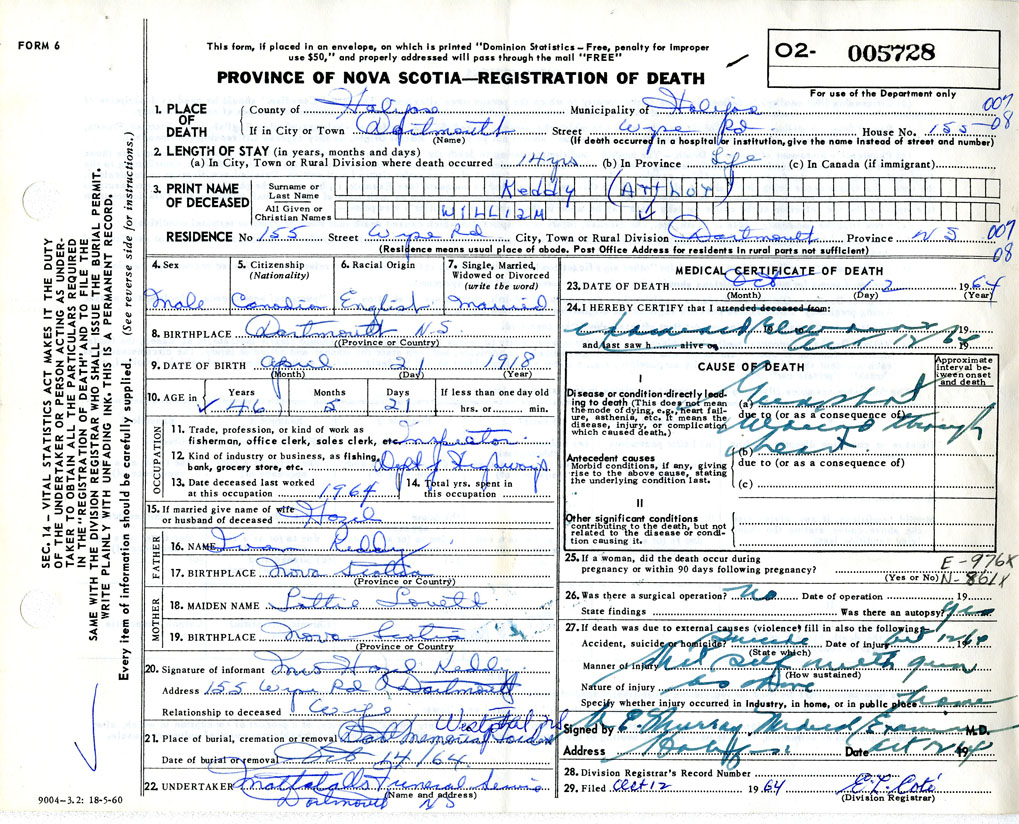 FORM 6
This form, if placed in an envelope, on which is printed "Dominion Statistics – Free, penalty for improper
use $50," and properly addressed will pass through the mail "FREE"
PROVINCE OF NOVA SCOTIA—REGISTRATION OF DEATH
O2- 005728
For use of the Department only
007
08
1. PLACE OF DEATH
County of Halifax Municipality of Halifax
If in City or Town Dartmouth Street Wyse Rd. House No. 155
(Name) (If death occurred in a hospital or institution, give the name instead of street and number)
2. LENGTH OF STAY (in years, months and days)
(a) In City, Town or Rural Division where death occurred 14 yrs (b) In Province Life (c) In Canada (if immigrant)
3. PRINT NAME OF DECEASED
Surname or Last Name Reddy (Arthur)
All Given or Christian Names William
RESIDENCE No 155 Street Wyse Rd City, Town or Rural Division Dartmouth Province N S
007
08
(Residence means usual place of abode. Post Office Address for residents in rural parts not sufficient)
4. Sex
Male
5. Citizenship (Nationality)
Canadian
6. Racial Origin
English
7. Single, Married, Widowed or Divorced (write the word)
Married
8. BIRTHPLACE Dartmouth N.S.
(Province or Country)
9. DATE OF BIRTH April 21 1918
(Month) (Day) (Year)
10. AGE in Years Months Days If less than one day old
46 5 21 hrs. or min.
OCCUPATION
11. Trade, profession, or kind of work as
fisherman, office clerk, sales clerk, etc. Inspector
12. Kind of industry or business, as fishing,
bank, grocery store, etc. Dept of Highways
13. Date deceased last worked
at this occupation 1964
14. Total yrs. spent in
this occupation
15. If married give name of wife
or husband of deceased Hazel
FATHER
16. NAME Reddy
17. BIRTHPLACE Nova Scotia
(Province or Country)
MOTHER
18. MAIDEN NAME Lottie Lovett
19. BIRTHPLACE Nova Scotia
(Province or Country)
20. Signature of informant Mrs Hazel Reddy
Address 155 Wyse Rd Dartmouth
Relationship to deceased Wife
21. Place of burial, cremation or removal Dart Memorial Gardens Westphal
Date of burial or removal Oct 14/64
22. UNDERTAKER Mattatalls Funeral Service
(Name and address)
Dartmouth N S
MEDICAL CERTIFICATE OF DEATH
23. DATE OF DEATH Oct 12 1964
(Month) (Day) (Year)
24. I HEREBY CERTIFY that I attended deceased from:
19
and last saw h alive on Oct 12 64 19
CAUSE OF DEATH
Approximate interval between onset and death
I
Disease or condition directly leading to death (This does not mean the mode of dying, e.g., heart failure, asthenia, etc. It means the disease, injury, or complication which caused death.)
(a) Gunshot
due to (or as a consequence of)
wound through
(b) heart
due to (or as a consequence of)
(c)
Antecedent causes
Morbid conditions, if any, giving rise to the above cause, stating the underlying condition last.
II
Other significant conditions
contributing to the death, but not related to the disease or condition causing it.
25. If a woman, did the death occur during
pregnancy or within 90 days following pregnancy?
(Yes or No)
E-976X
N-861X
26. Was there a surgical operation? No Date of operation 19
State findings Was there an autopsy? yes
27. If death was due to external causes (violence) fill in also the following:
Accident, suicide or homicide? Suicide Date of injury Oct 12 64
(State which)
Manner of injury Shot self with gun
(How sustained)
Nature of injury as above
Specify whether injury occurred in industry, in home, or in public place home
Signed by E. Murray Medical Examiner M.D.
Address Halifax Date Oct 12 1964
28. Division Registrar's Record Number
29. Filed Oct 12 1964 E. L. Coté
(Division Registrar)
SEC. 14 – VITAL STATISTICS ACT MAKES IT THE DUTY
OF THE UNDERTAKER OR PERSON ACTING AS UNDER-
TAKER TO OBTAIN ALL THE PARTICULARS REQUIRED
IN THE "REGISTRATION OF DEATH" AND TO FILE THE
SAME WITH THE DIVISION REGISTRAR WHO SHALL ISSUE THE BURIAL PERMIT.
WRITE PLAINLY WITH UNFADING INK. THIS IS A PERMANENT RECORD.
Every item of information should be carefully supplied. (See reverse side for instructions.)
9004–3.2: 18-5-60